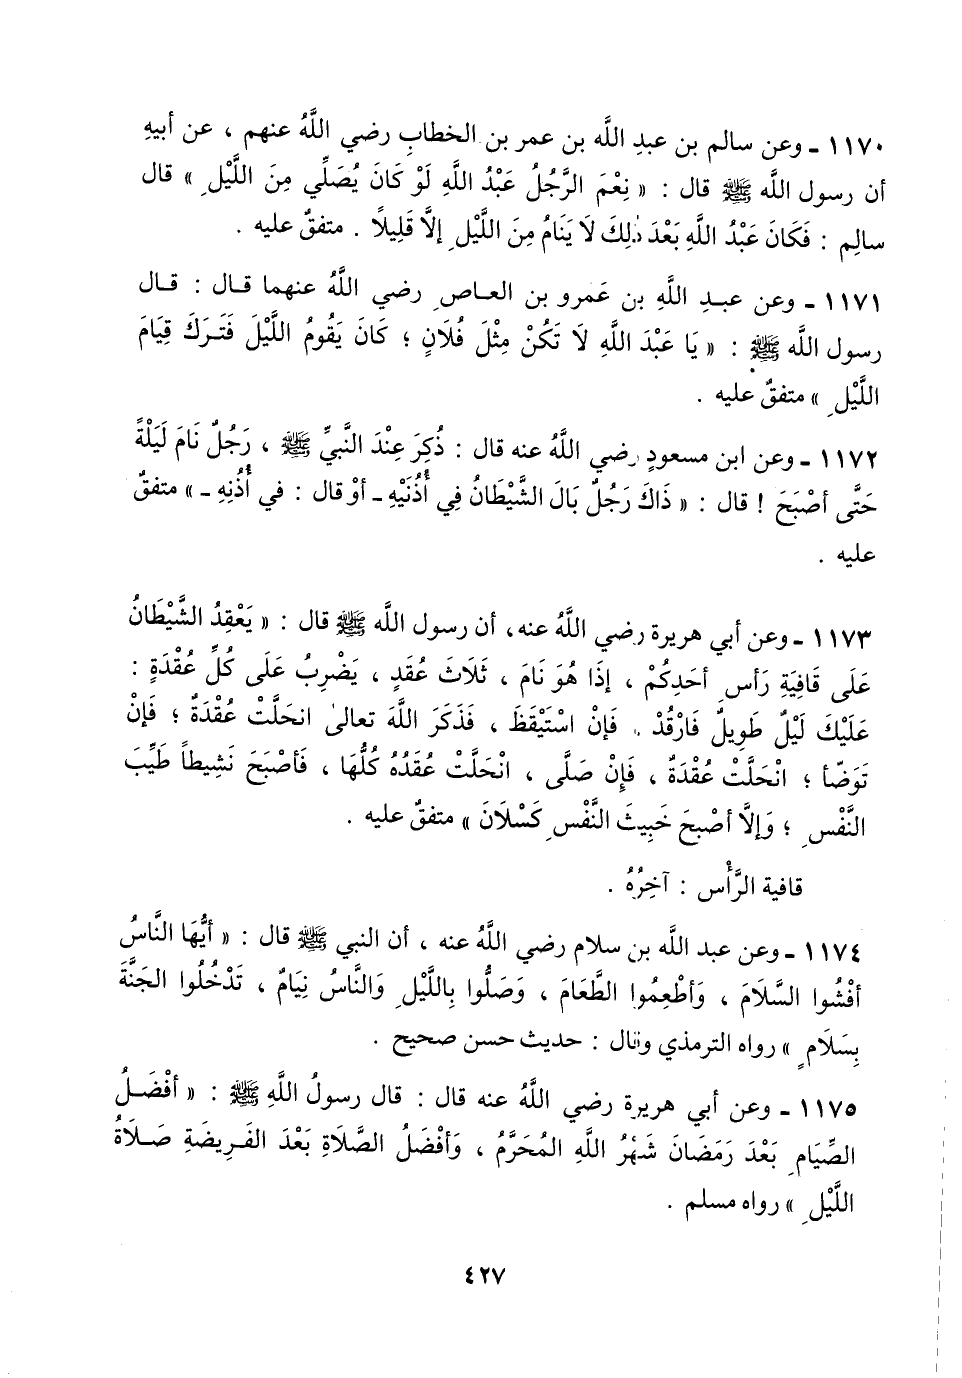 ١١٧٠ ـ وعن سالم بن عبدِ اللَّه بن عمر بن الخطابِ رضي اللَّهُ عنهم ، عن أبيهِ
أن رسول اللَّه ﷺ قال : « نِعْمَ الرَّجُلُ عَبْدُ اللَّهِ لَوْ كَانَ يُصَلِّي مِنَ اللَّيْلِ » قال
سالِم : فَكَانَ عَبْدُ اللَّهِ بَعْدَ ذٰلِكَ لَا يَنَامُ مِنَ اللَّيْلِ إلَّا قَلِيلًا . متفقٌ عليه .
١١٧١ ـ وعن عبـدِ اللَّهِ بن عَمرو بن العـاصِ رضي اللَّهُ عنهما قـال : قـال
رسول اللَّه ﷺ : « يَا عَبْدَ اللَّهِ لَا تَكُنْ مِثْلَ فُلَانٍ ؛ كَانَ يَقُومُ اللَّيْلَ فَتَـرَكَ قِيَامَ
اللَّيْلِ » متفقٌ عليه .
١١٧٢ ـ وعن ابن مسعودٍ رضي اللَّهُ عنه قال : ذُكِرَ عِنْدَ النَّبيِّ ﷺ ، رَجُلٌ نَامَ لَيْلَةً
حَتَّى أصْبَحَ ! قال : « ذَاكَ رَجُلٌ بَالَ الشَّيْطَانُ فِي أُذُنَيْهِ ـ أوْ قال : في أُذُنِهِ ـ » متفقٌ
عليه .
١١٧٣ ـ وعن أبي هريرة رضي اللَّهُ عنه، أن رسول اللَّه ﷺ قال : « يَعْقِدُ الشَّيْطَانُ
عَلَى قَافِيَةِ رَأسِ أحَدِكُمْ ، إذَا هُوَ نَامَ ، ثَلَاثَ عُقَدٍ ، يَضْرِبُ عَلَى كُلِّ عُقْدَةٍ :
عَلَيْكَ لَيْلٌ طَوِيلٌ فَارْقُدْ . فَإنْ اسْتَيْقَظَ ، فَذَكَرَ اللَّهَ تعالىٰ انحَلَّتْ عُقْدَةٌ ؛ فَإنْ
تَوَضّأ ؛ انْحَلَّتْ عُقْدَةٌ ، فَإِنْ صَلَّى ، انْحَلَّتْ عُقَدُهُ كُلُّهَا ، فَأصْبَحَ نَشِيطاً طَيِّبَ
النَّفْسِ ؛ وَإلَّا أصْبحَ خَبِيثَ النَّفْسِ كَسْلَانَ » متفقٌ عليه .
قافية الرَّأْس : آخِرُهُ .
١١٧٤ ـ وعن عبد اللَّه بن سلام رضي اللَّهُ عنه ، أن النبي ﷺ قال : « أيُّهَا النَّاسُ
أفْشُوا السَّلَامَ ، وَأطْعِمُوا الطَّعَامَ ، وَصَلُّوا بِاللَّيْلِ وَالنَّاسُ نِيَامٌ ، تَدْخُلُوا الجَنَّةَ
بِسَلَامٍ » رواه الترمذي وقال : حديث حسن صحيح .
١١٧٥ ـ وعن أبي هريرة رضي اللَّهُ عنه قال : قال رسولُ اللَّهِ ﷺ : « أفْضَـلُ
الصِّيَامِ بَعْدَ رَمَضَانَ شَهْرُ اللَّهِ المُحَرَّمُ ، وَأفْضَلُ الصَّلَاةِ بَعْدَ الفَـرِيضَةِ صَـلَاةُ
اللَّيْلِ » رواه مسلم .
٤٢٧